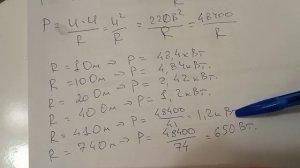 R
P = U·U/R = U²/R = 220В²/R = 48400/R
R = 1 Ом → P = 48,4 кВт.
R = 10 Ом → P = 4,84 кВт.
R = 20 Ом → P = 2,42 кВт.
R = 40 Ом → P = 1,2 кВт.
R = 41 Ом → P = 48400/41 = 1,2 кВт
R = 74 Ом → P = 48400/74 = 650 Вт.